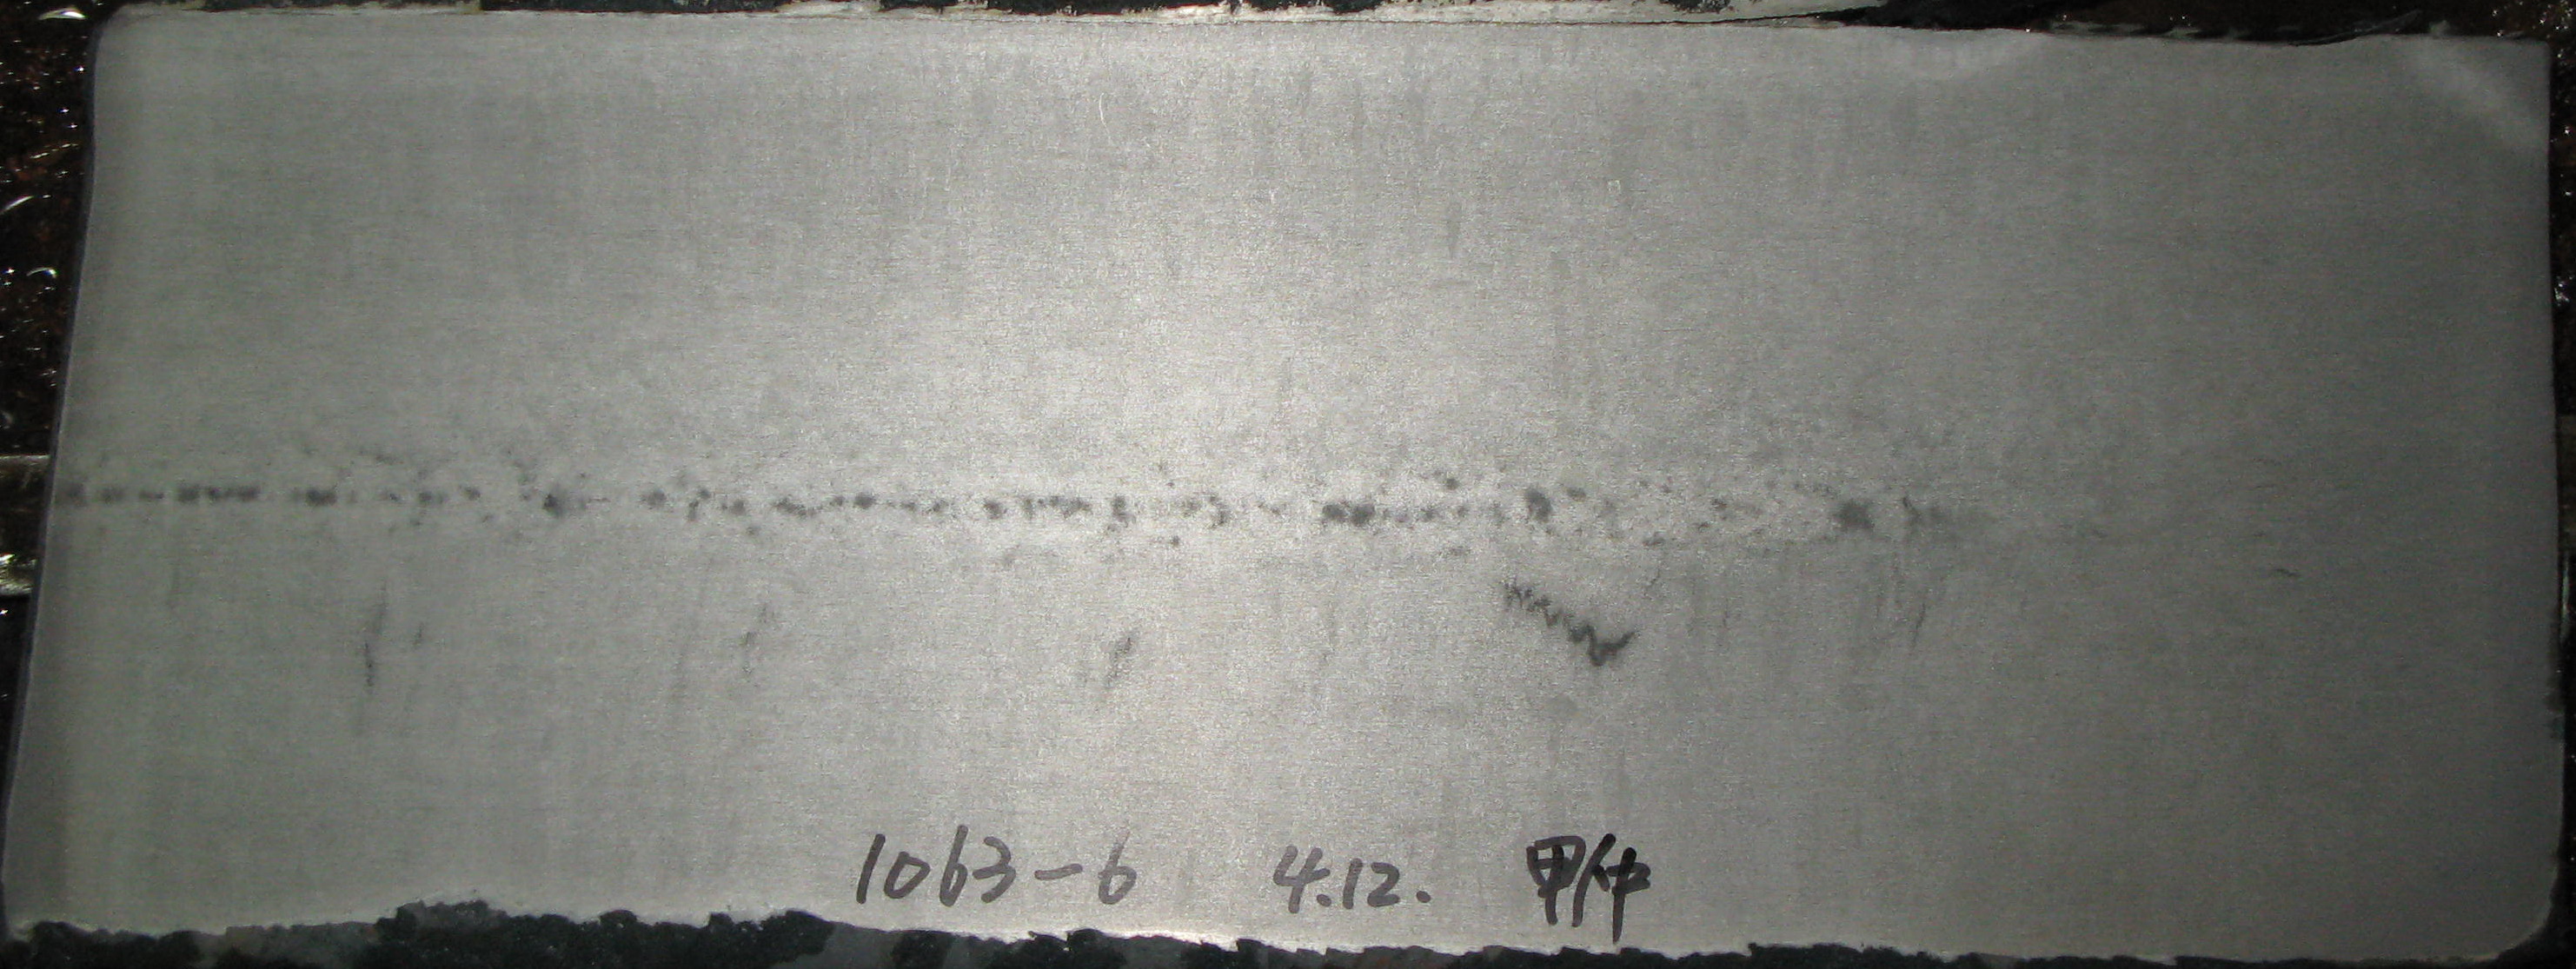 1063-6 4.12. 甲仲